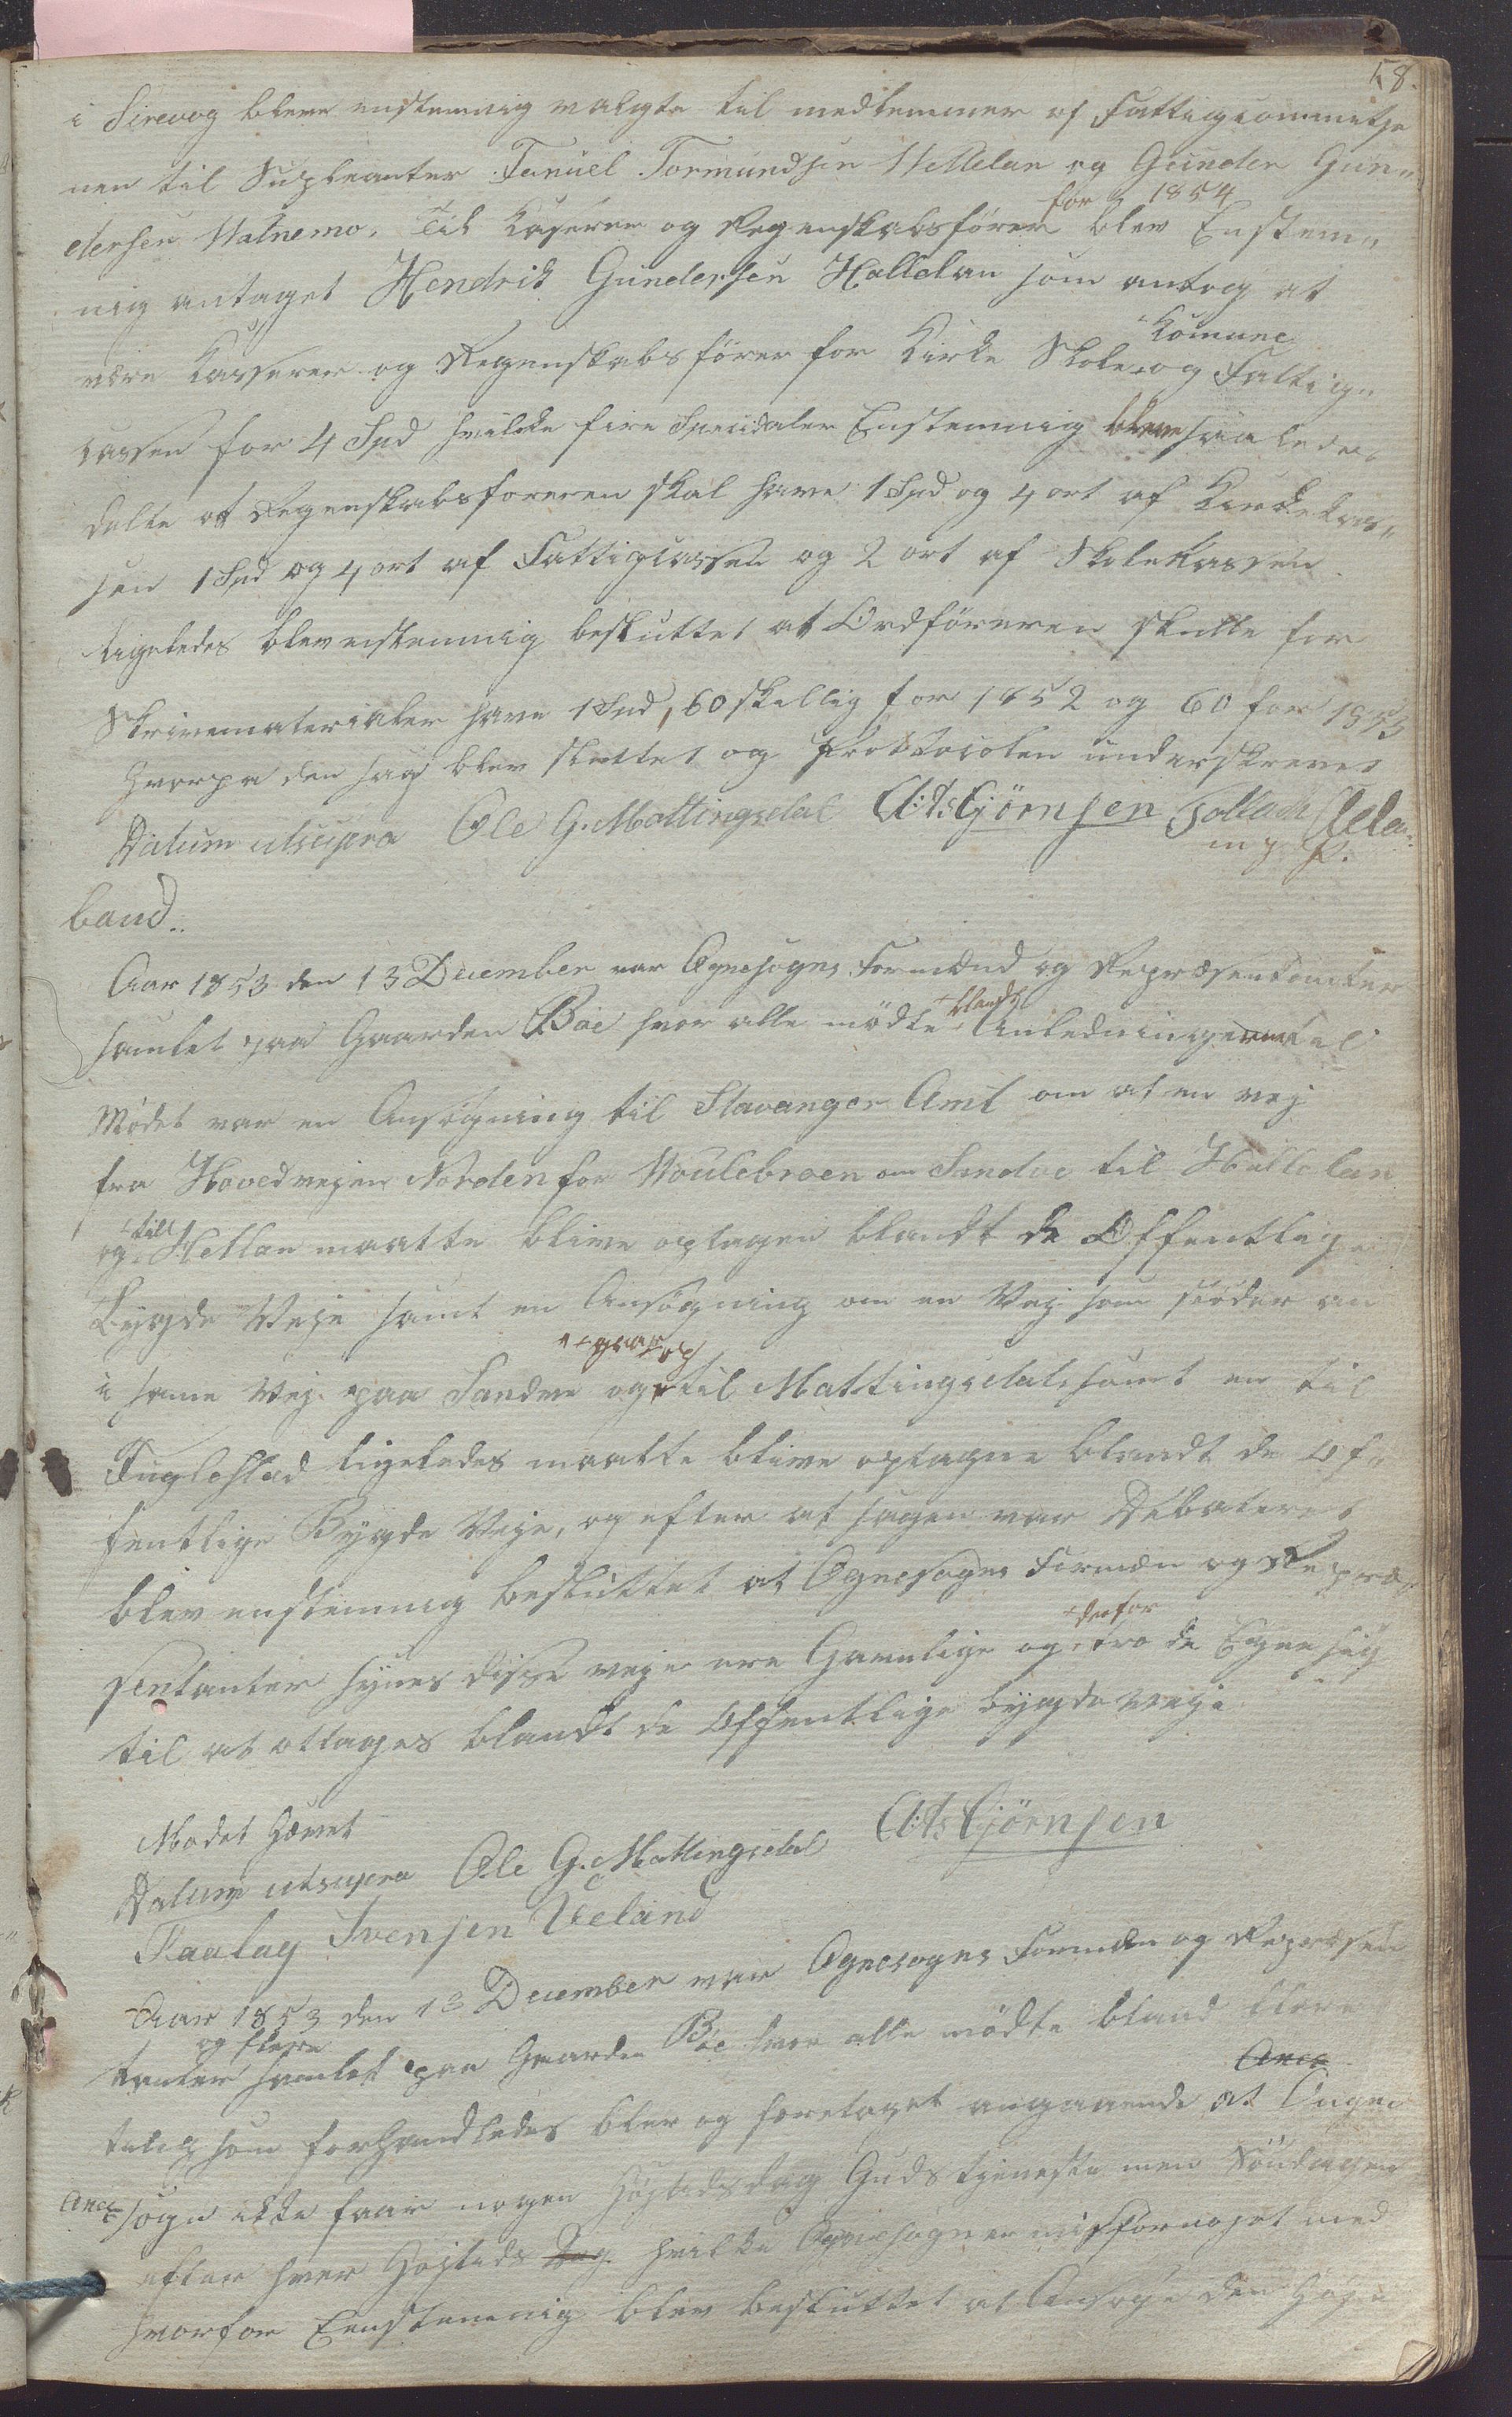 58.
i Sirevog bleve enstemmig valgte til medlemmer af Fattigcommitse
nen til Supleanter Tanuel Tormundsen Hellelan og Gunder Gun„
for 1854
dersen Watnemo. Til Kaserer og Regenskabsfører blev Enstem„
nig antaget Hendrik Gundersen Hallelan som antog at
Komune
være Kasserer og Regenskabsfører for Kirke Skole og Fattig„
cassen for 4 Spd hvilcke fire Speciedaler Enstemmig bleve saaledes
delte at Regenskabsføreren skal have 1 Spd og 4 ort af Kirkekas„
sen 1 Spd og 4 ort af Fattigcassen og 2 ort af Skolekassen
ligeledes blev enstemmig besluttet at Ordføreren skulle for
Skrivematerialer have 1 Spd, 60 skellig for 1852 og 60 for 1853
hvorpa den sag blev sluttet og Protocolen underskrevet
Datum utsupra Ole G. Mattingsdal A: Asbjörnsen Tollach Uela„
m. p. P.
band..
Aar 1853 den 13 December var Ognesogns Formænd og Repræsentanter
samlet paa Gaarden Bøe hvor alle mödte blandt Anledningerne til
Mödet var en Ansøgning til Stavanger Amt om at en vej
fra Hovedvejen Norden for Woulebroen om Sandve til Hellelan
og till Hellan maatte blive optagen blandt de Offentlige
Bygde Veje samt en Ansøgning om en Vej som støder an
gaar op
i samme Vej paa Sandve og til Mattingsdal samt en til
Fuglestad ligeledes maatte blive optagne blandt de Of„
fentlige Bygde Veje, og efter at sagen var Debateret
blev enstemmig besluttet at Ognesogns Formæn og Repræ„
derfor
sentanter synes disse veje ere Gavnlige og tro de Egne sig
til at ottages blandt de Offentlige bygdeveje
Mødet Hævet
Datum utsupra Ole G. Mattingsdal A: Asbjörnsen
Taalag Svensen Ueland
Aar 1853 den 13 December var Ognesogns Formæn og Repræsen
og flere
tanter samlet paa Gaarden Böe hvor alle mödte bland flere
Ance
ting som forhandledes blev og foretaget angaaende at Ougne
Ance sogn ikke faar nogen Højtidsdag Gudstjeneste men Söndagen
efter hver Højtids Dag hvilke Ognesogn er misfornøjet med
hvorfor Eenstemmig blev besluttet at Ansøge den Høje